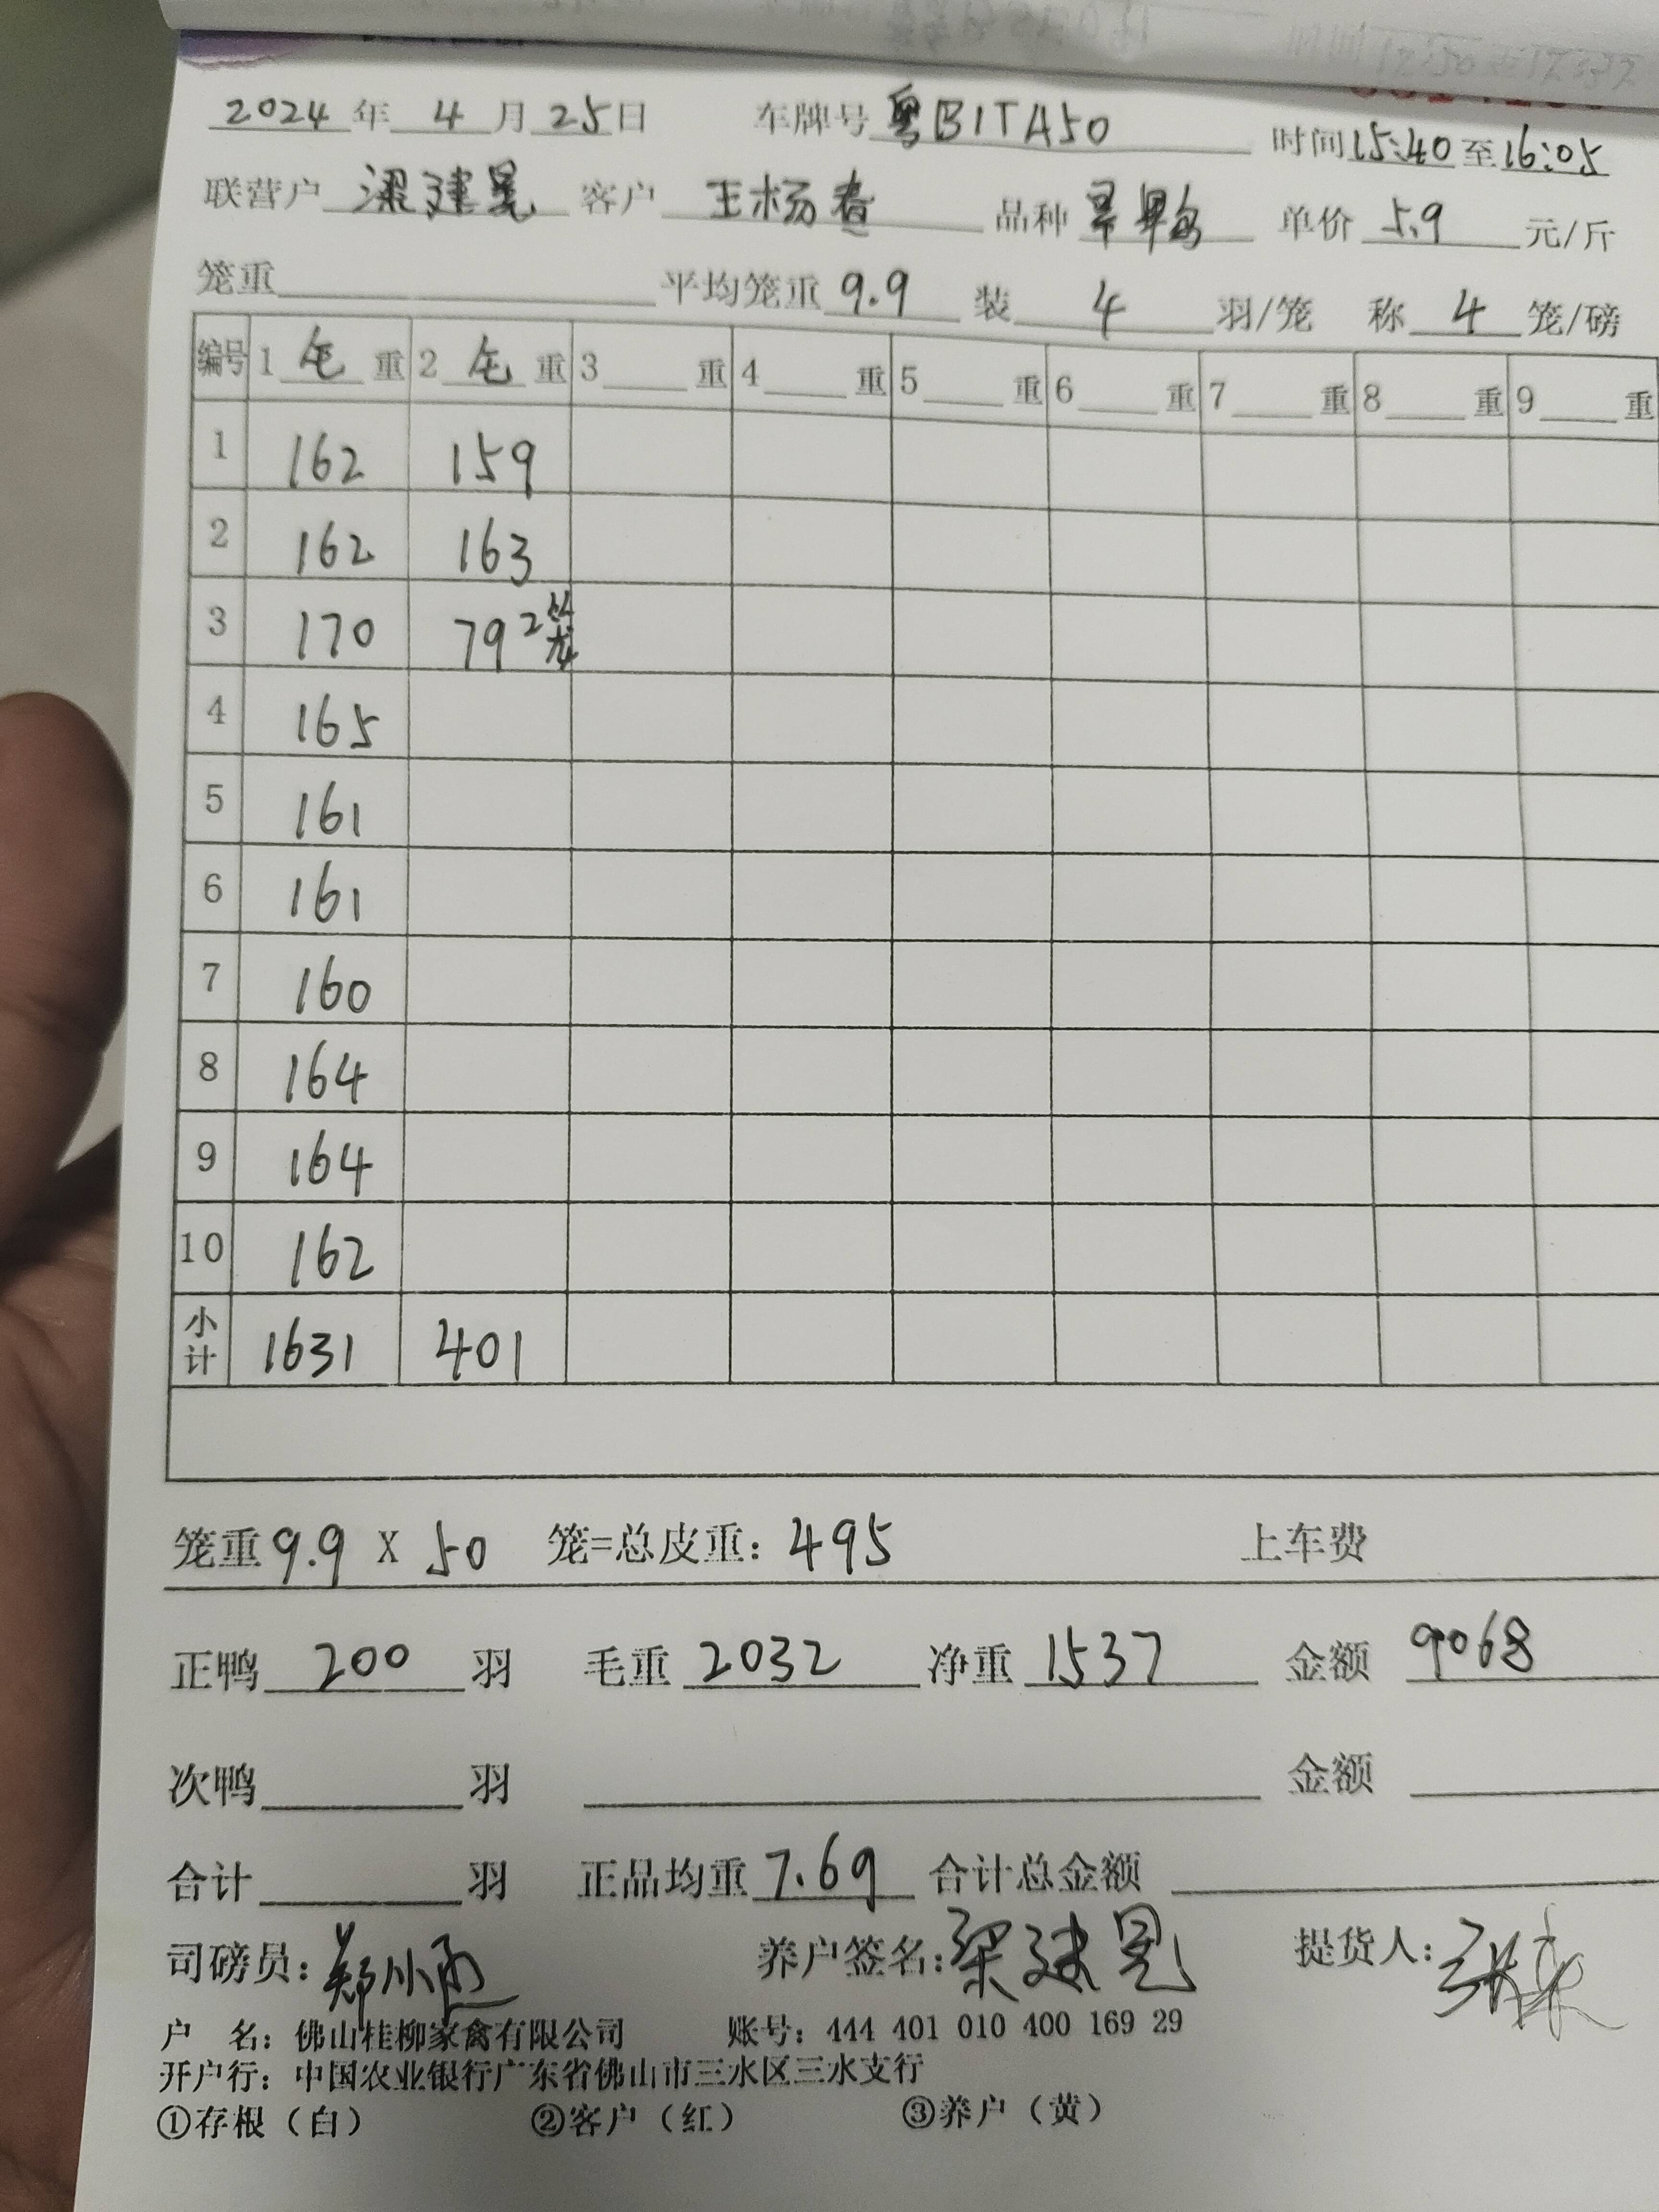 2024年4月25日 车牌号粤B1TA50 时间15:40至16:05
联营户梁建晃 客户王杨春 品种旱鸭 单价5.9元/斤
笼重 平均笼重9.9 装4羽/笼 称4笼/磅
编号 1毛重 2毛重 3重 4重 5重 6重 7重 8重 9重
1 162 159
2 162 163
3 170 79 2笼
4 165
5 161
6 161
7 160
8 164
9 164
10 162
小计 1631 401
笼重9.9 X 50 笼=总皮重：495 上车费
正鸭200羽 毛重2032 净重1537 金额9068
次鸭 羽 金额
合计 羽 正品均重7.69 合计总金额
司磅员：郑小 养户签名：梁建晃 提货人：
户 名：佛山桂柳家禽有限公司 账号：444 401 010 400 169 29
开户行：中国农业银行广东省佛山市三水区三水支行
①存根（白） ②客户（红） ③养户（黄）